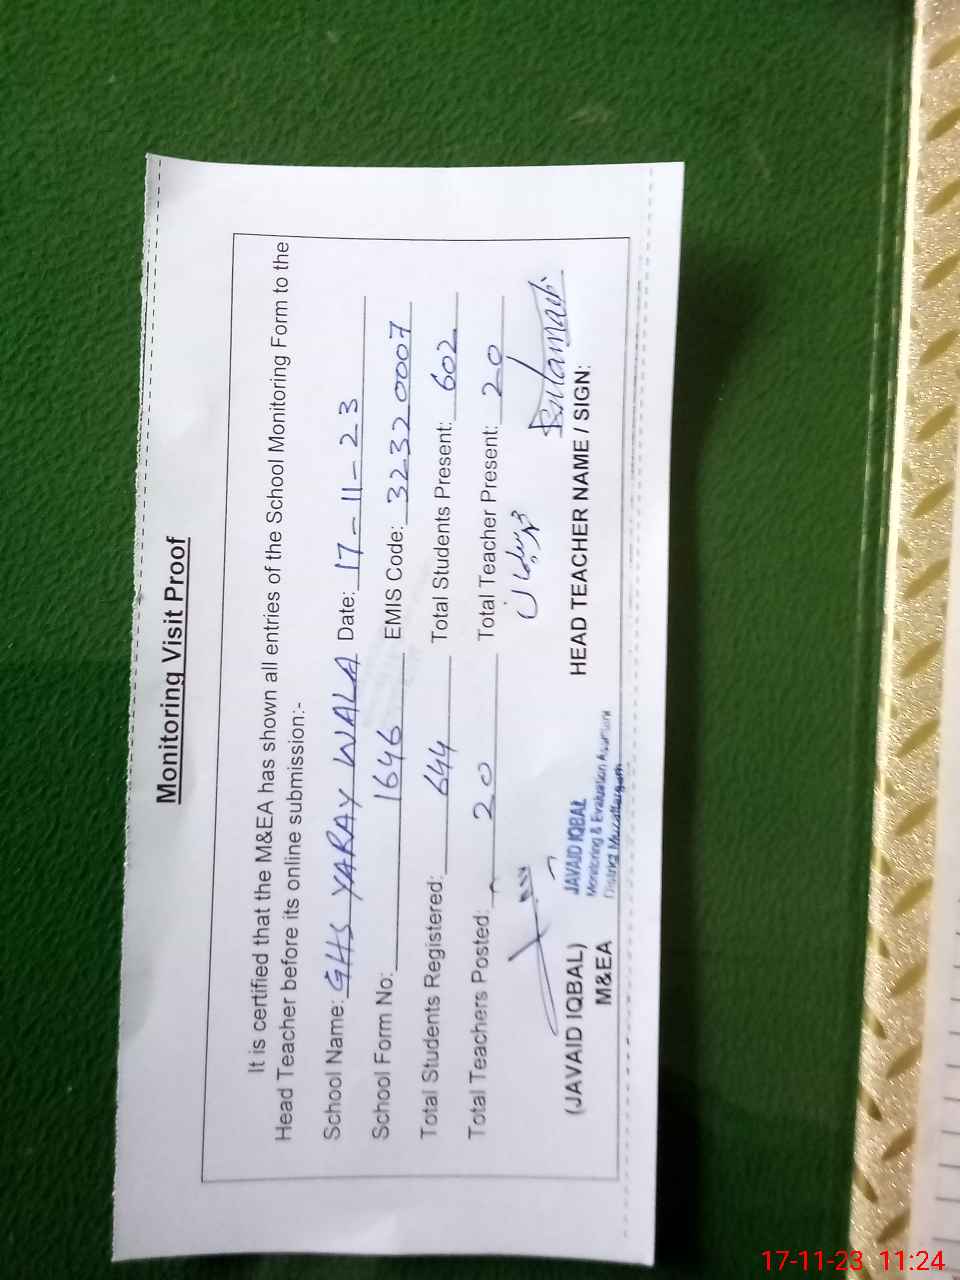 Monitoring Visit Proof
It is certified that the M&EA has shown all entries of the School Monitoring Form to the
Head Teacher before its online submission:-
School Name: GHS YARAY WALA Date: 17-11-23
School Form No: 1646 EMIS Code: 32320007
Total Students Registered: 644 Total Students Present: 602
Total Teachers Posted: 20 Total Teacher Present: 20
(JAVAID IQBAL)
M&EA
JAVAID IQBAL
Monitoring & Evaluation Assistant
District Muzaffargarh
HEAD TEACHER NAME / SIGN:
17-11-23 11:24